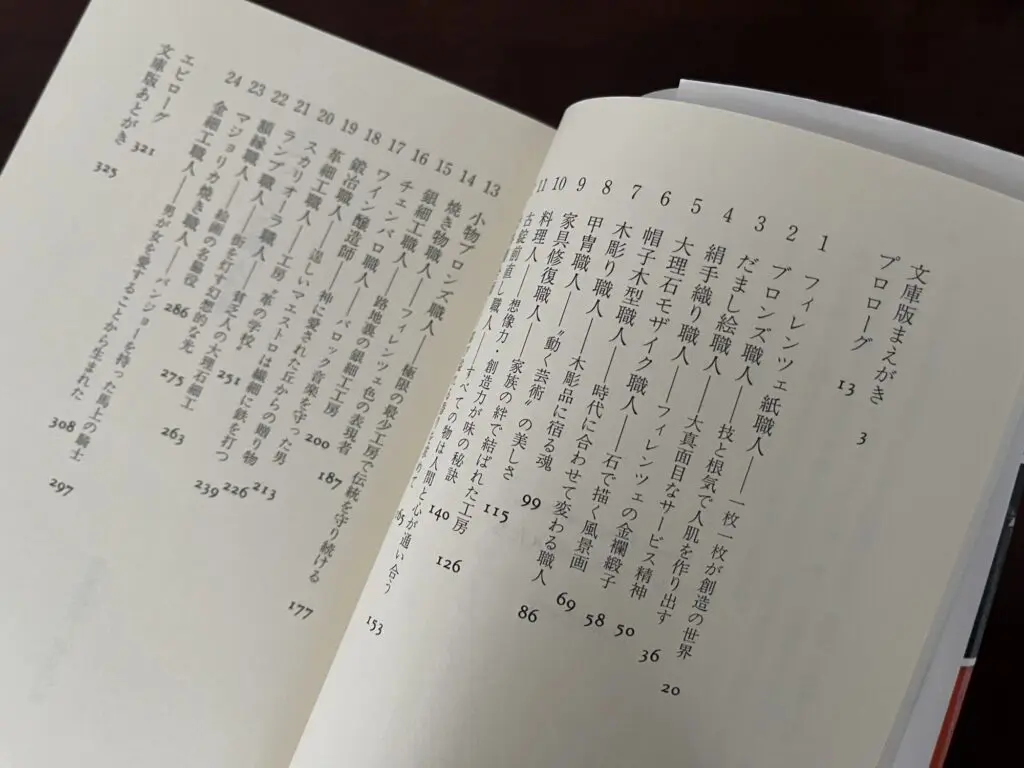 文庫版まえがき 3
プロローグ 13
1 フィレンツェ紙職人——一枚一枚が創造の世界 20
2 ブロンズ職人——技と根気で人肌を作り出す 36
3 だまし絵職人——大真面目なサービス精神 50
4 絹手織り職人——フィレンツェの金襴緞子 58
5 大理石モザイク職人——石で描く風景画 69
6 帽子木型職人——時代に合わせて変わる職人 86
7 木彫り職人——木彫品に宿る魂 99
8 甲冑職人——“動く芸術”の美しさ 115
9 家具修復職人——家族の絆で結ばれた工房 126
10 料理人——想像力・創造力が味の秘訣 140
11 直し職人——すべての物は人間と心が通い合う 153
165
13 小物ブロンズ職人——極限の最少工房で伝統を守り続ける 177
14 焼き物職人——フィレンツェ色の表現者 187
15 銀細工職人——路地裏の銀細工工房 200
16 チェンバロ職人——バロック音楽を守った男 213
17 ワイン醸造師——神に愛された丘からの贈り物 226
18 鍛冶職人——逞しいマエストロは繊細に鉄を打つ 239
19 革細工職人——“革の学校” 251
20 スカリオーラ職人——貧乏人の大理石細工 263
21 ランプ職人——街を灯す幻想的な光 275
22 額縁職人——絵画の名脇役 286
23 マジョリカ焼き職人——バンジョーを持った馬上の騎士 297
24 金細工職人——男が女を愛することから生まれた 308
エピローグ 321
文庫版あとがき 325